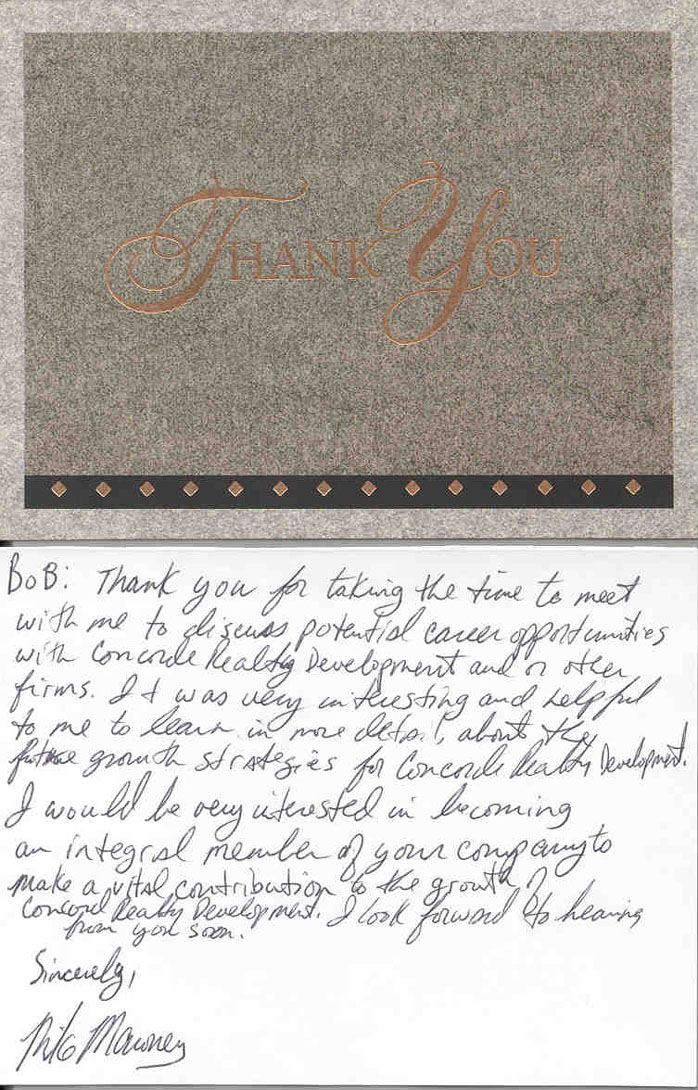 THANK YOU
BOB: Thank you for taking the time to meet
with me to discuss potential career opportunities
with Concorde Realty Development and or other
firms. It was very interesting and helpful
to me to learn in more detail, about the
future growth strategies for Concorde Realty Development.
I would be very interested in becoming
an integral member of your company to
make a vital contribution to the growth of
Concord Realty Development. I look forward to hearing
from you soon.
Sincerely,